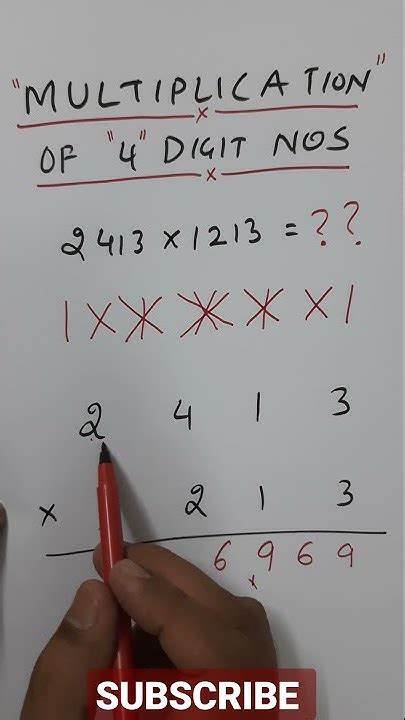 "MULTIPLICATION"
OF "4" DIGIT NOS
2413 x 1213 = ??
2 4 1 3
x 2 1 3
6 9 6 9
SUBSCRIBE